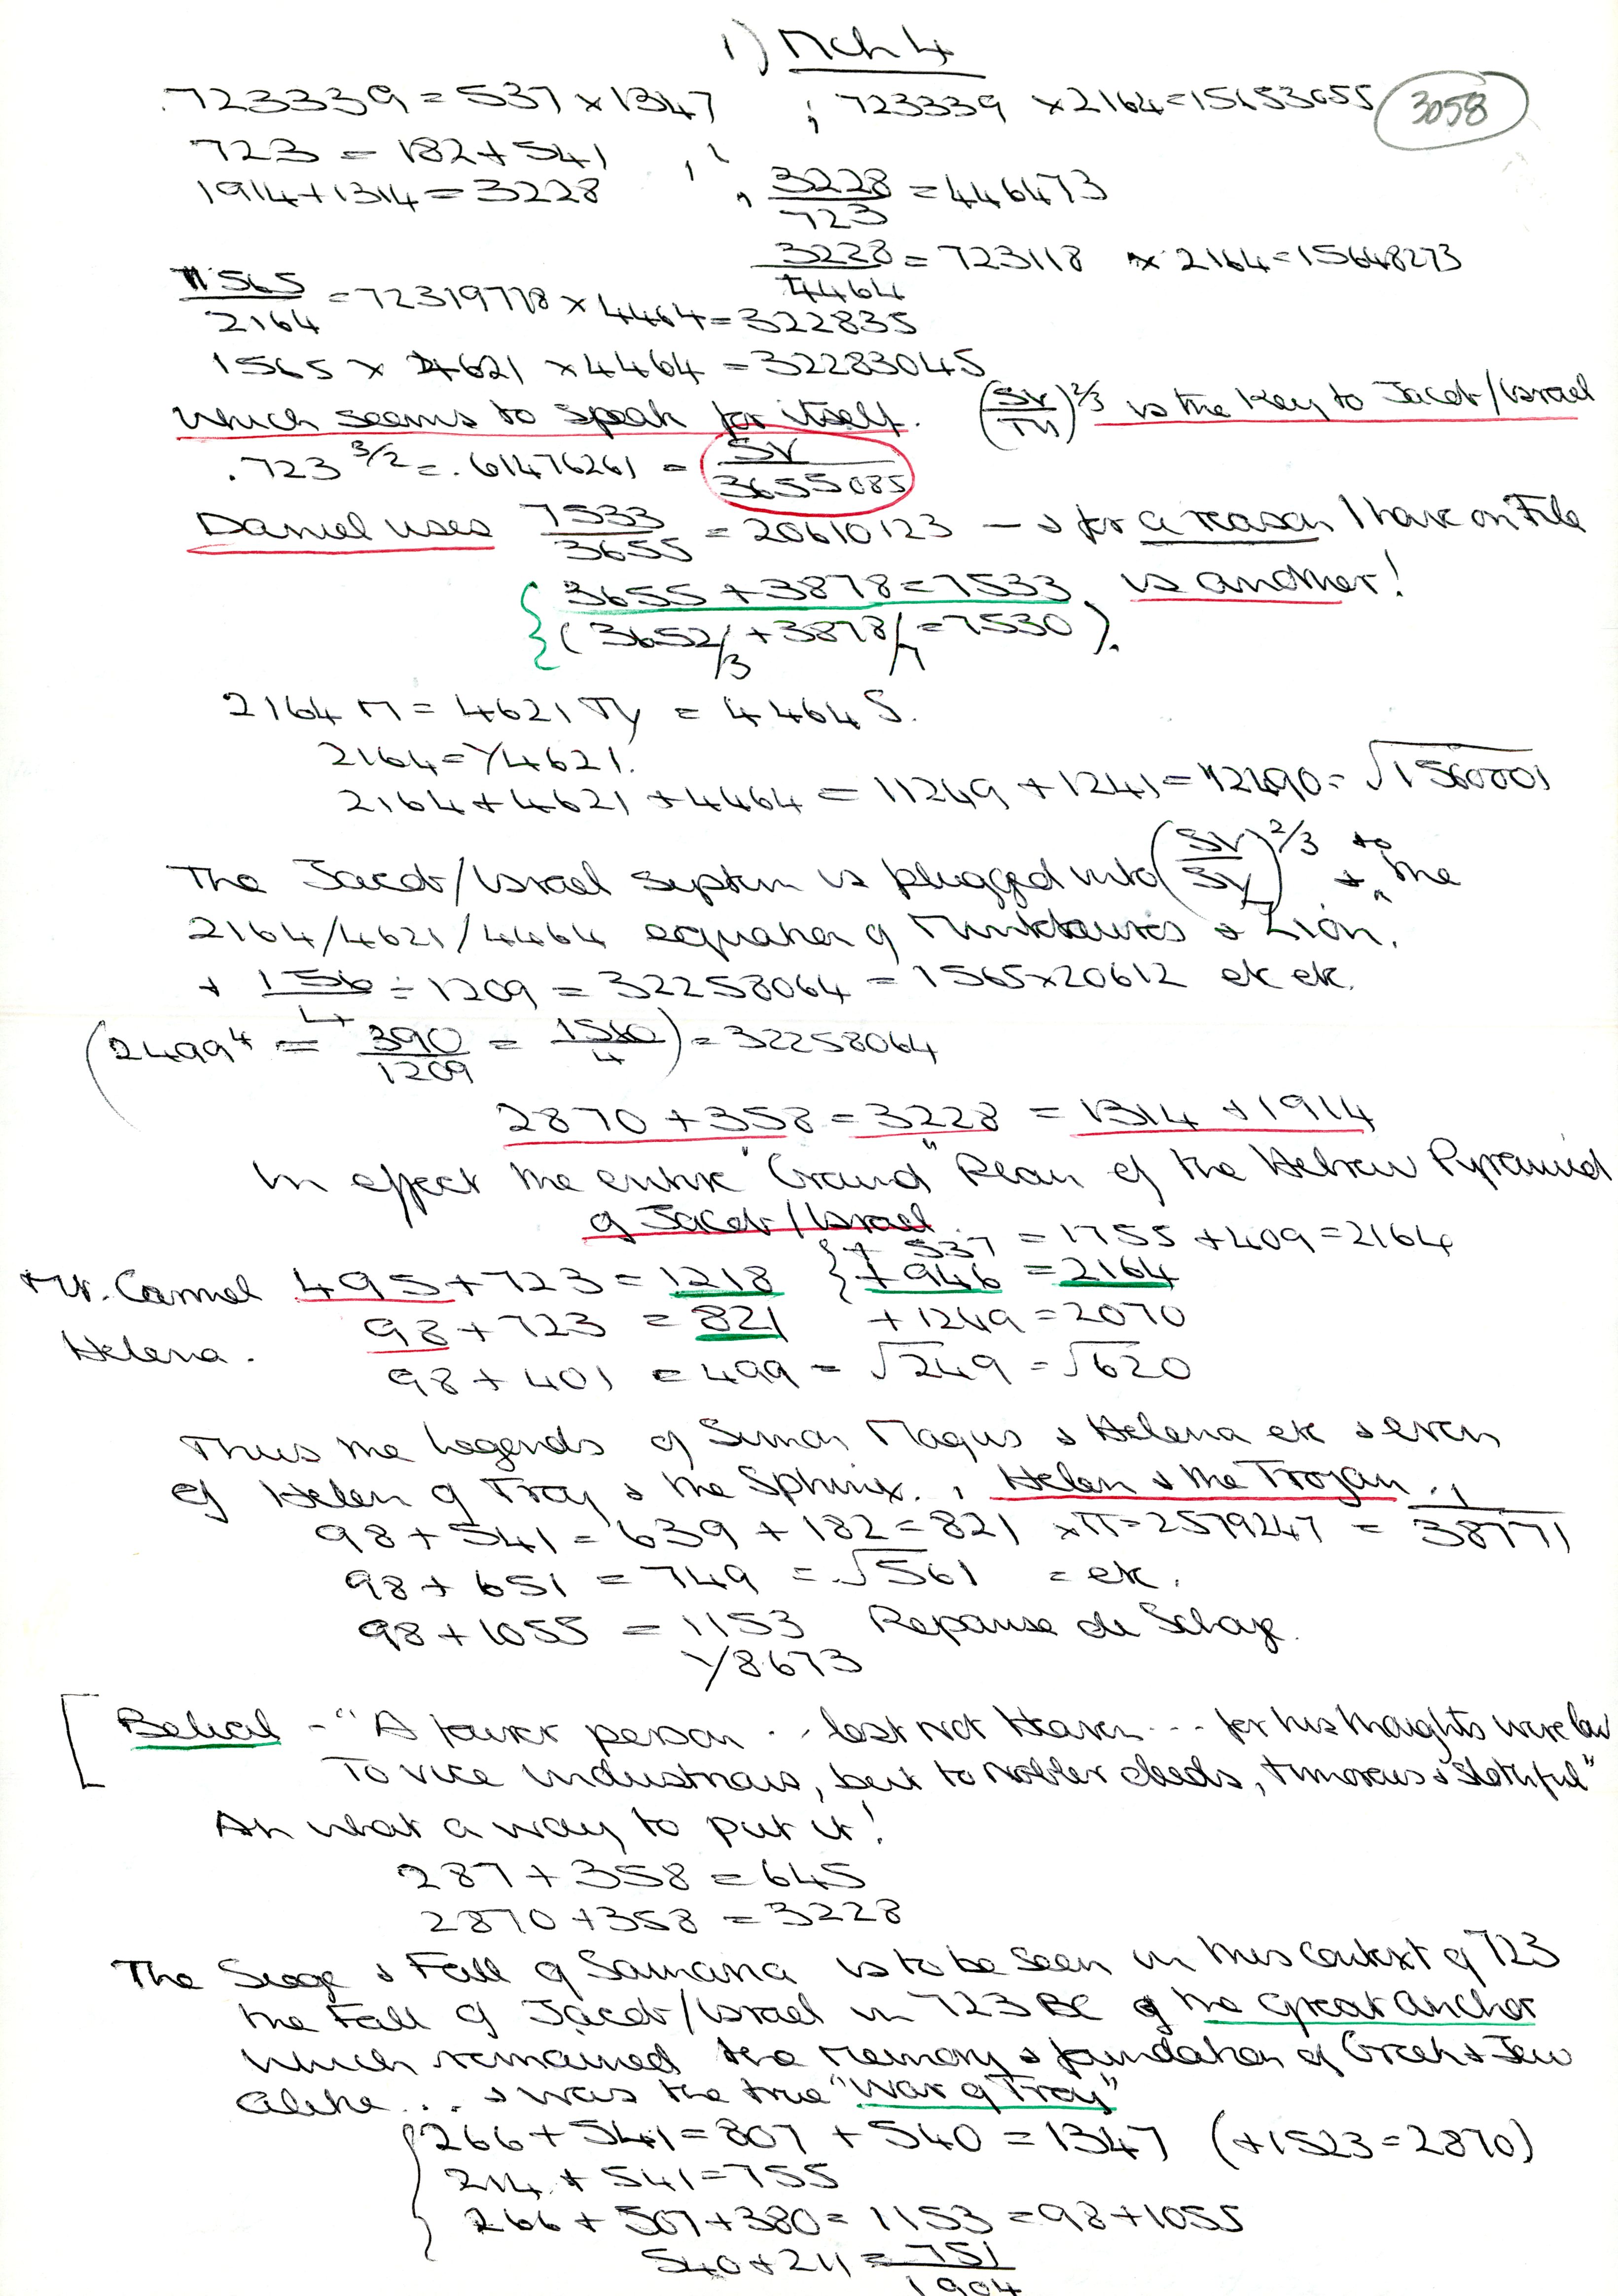 1) Mch 4
.723339 = 537 x 1347 ; 723339 x 2164 = 15653055 3058
723 = 182 + 541
1914 + 1314 = 3228 , 3228/723 = 446473
3228/4464 = 723118 x 2164 = 15648273
1565/2164 = 72319778 x 4464 = 322835
1565 x 4621 x 4464 = 32283045
which seems to speak for itself. (SV/TM)^2/3 is the Key to Jacob/Israel
.723^3/2 = .61476261 = SV/3655085
Daniel uses 7533/3655 = 20610123 — & for a reason I have on File
{ 3655 + 3878 = 7533 is another!
{ (3652/3 + 3878/7 = 7530).
2164 M = 4621 Ty = 4464 S.
2164 = Y4621.
2164 + 4621 + 4464 = 11249 + 1241 = 12490 = √1560001
The Jacob/Israel system is plugged into (SV/SY)^2/3 to & the
2164/4621/4464 equation of & Zion.
+ 156/4 ÷ 1209 = 32258064 = 1565 x 20612 etc etc.
(2499^4 = 390/1209 = 1560/4) = 32258064
2870 + 358 = 3228 = 1314 + 1914
In effect the entire "Grand" Plan of the Hebrew Pyramid
of Jacob/Israel.
+ 537 = 1755 + 409 = 2164
Mt. Carmel 495 + 723 = 1218 } + 946 = 2164
98 + 723 = 821 + 1249 = 2070
Helena.
98 + 401 = 499 = √249 = √620
Thus the Legends of Simon Magus & Helena etc & even
of Helen of Troy & the Sphinx. , Helen & the Trojan.
98 + 541 = 639 + 182 = 821 x π = 2579247 = 1/38771
98 + 651 = 749 = √561 = etc.
98 + 1055 = 1153 Repanse de Schoye.
Y8673
[Belial - "A fairer person .. lost not Heaven ... for his thoughts were low
To vice industrious, but to Nobler deeds, timorous & slothful"
Ah what a way to put it!
287 + 358 = 645
2870 + 358 = 3228
The Seige & Fall of Samaria is to be seen in this context of 723
the Fall of Jacob/Israel in 723 BC of the great anchor
which remained the memory & foundation of Greek & Jew
alike... & was the true "War of Troy"
{ 266 + 541 = 807 + 540 = 1347 (+1523 = 2870)
214 + 541 = 755
266 + 507 + 380 = 1153 = 98 + 1055
540 + 211 = 751/1904